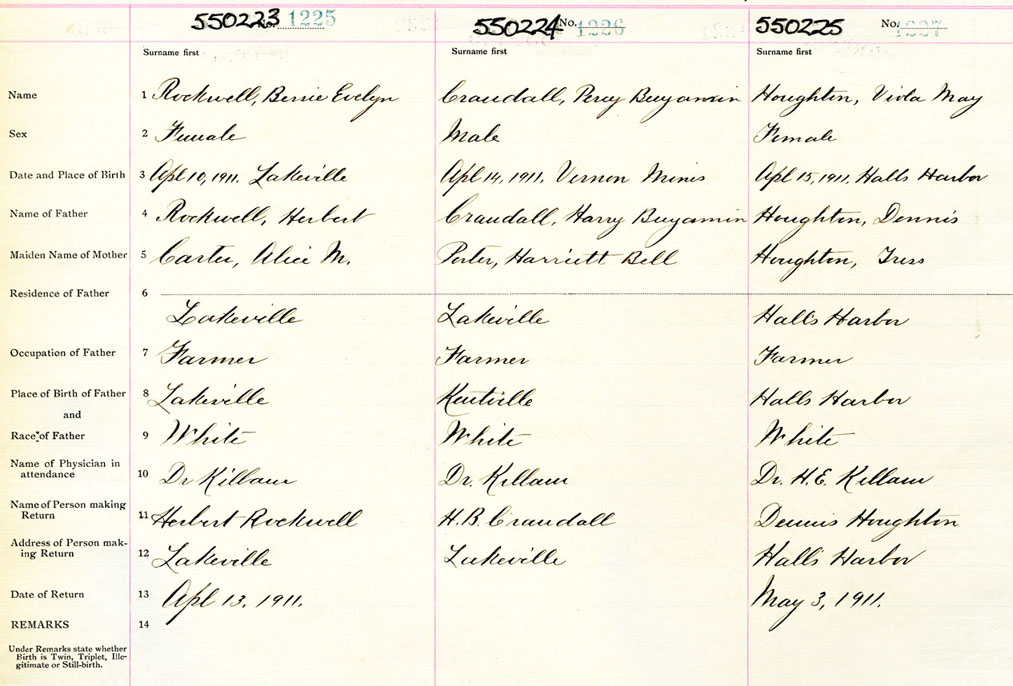 550223 No. 1225 550224 No. 1226 550225 No. 1227
Surname first Surname first Surname first
Name 1 Rockwell, Bessie Evelyn Crandall, Percy Benjamin Houghton, Viola May
Sex 2 Female Male Female
Date and Place of Birth 3 Apl 10, 1911. Lakeville Apl 14, 1911. Vernon Mines Apl 15, 1911. Halls Harbor
Name of Father 4 Rockwell, Herbert Crandall, Harry Benjamin Houghton, Dennis
Maiden Name of Mother 5 Carter, Alice M. Porter, Harriett Bell Houghton,
Residence of Father 6
Lakeville Lakeville Halls Harbor
Occupation of Father 7 Farmer Farmer Farmer
Place of Birth of Father 8 Lakeville Kentville Halls Harbor
and
Race of Father 9 White White White
Name of Physician in
attendance 10 Dr Killam Dr. Killam Dr. H.E. Killam
Name of Person making
Return 11 Herbert Rockwell H.B. Crandall Dennis Houghton
Address of Person mak-
ing Return 12 Lakeville Lakeville Halls Harbor
Date of Return 13 Apl 13, 1911. May 3, 1911.
REMARKS 14
Under Remarks state whether
Birth is Twin, Triplet, Ille-
gitimate or Still-birth.